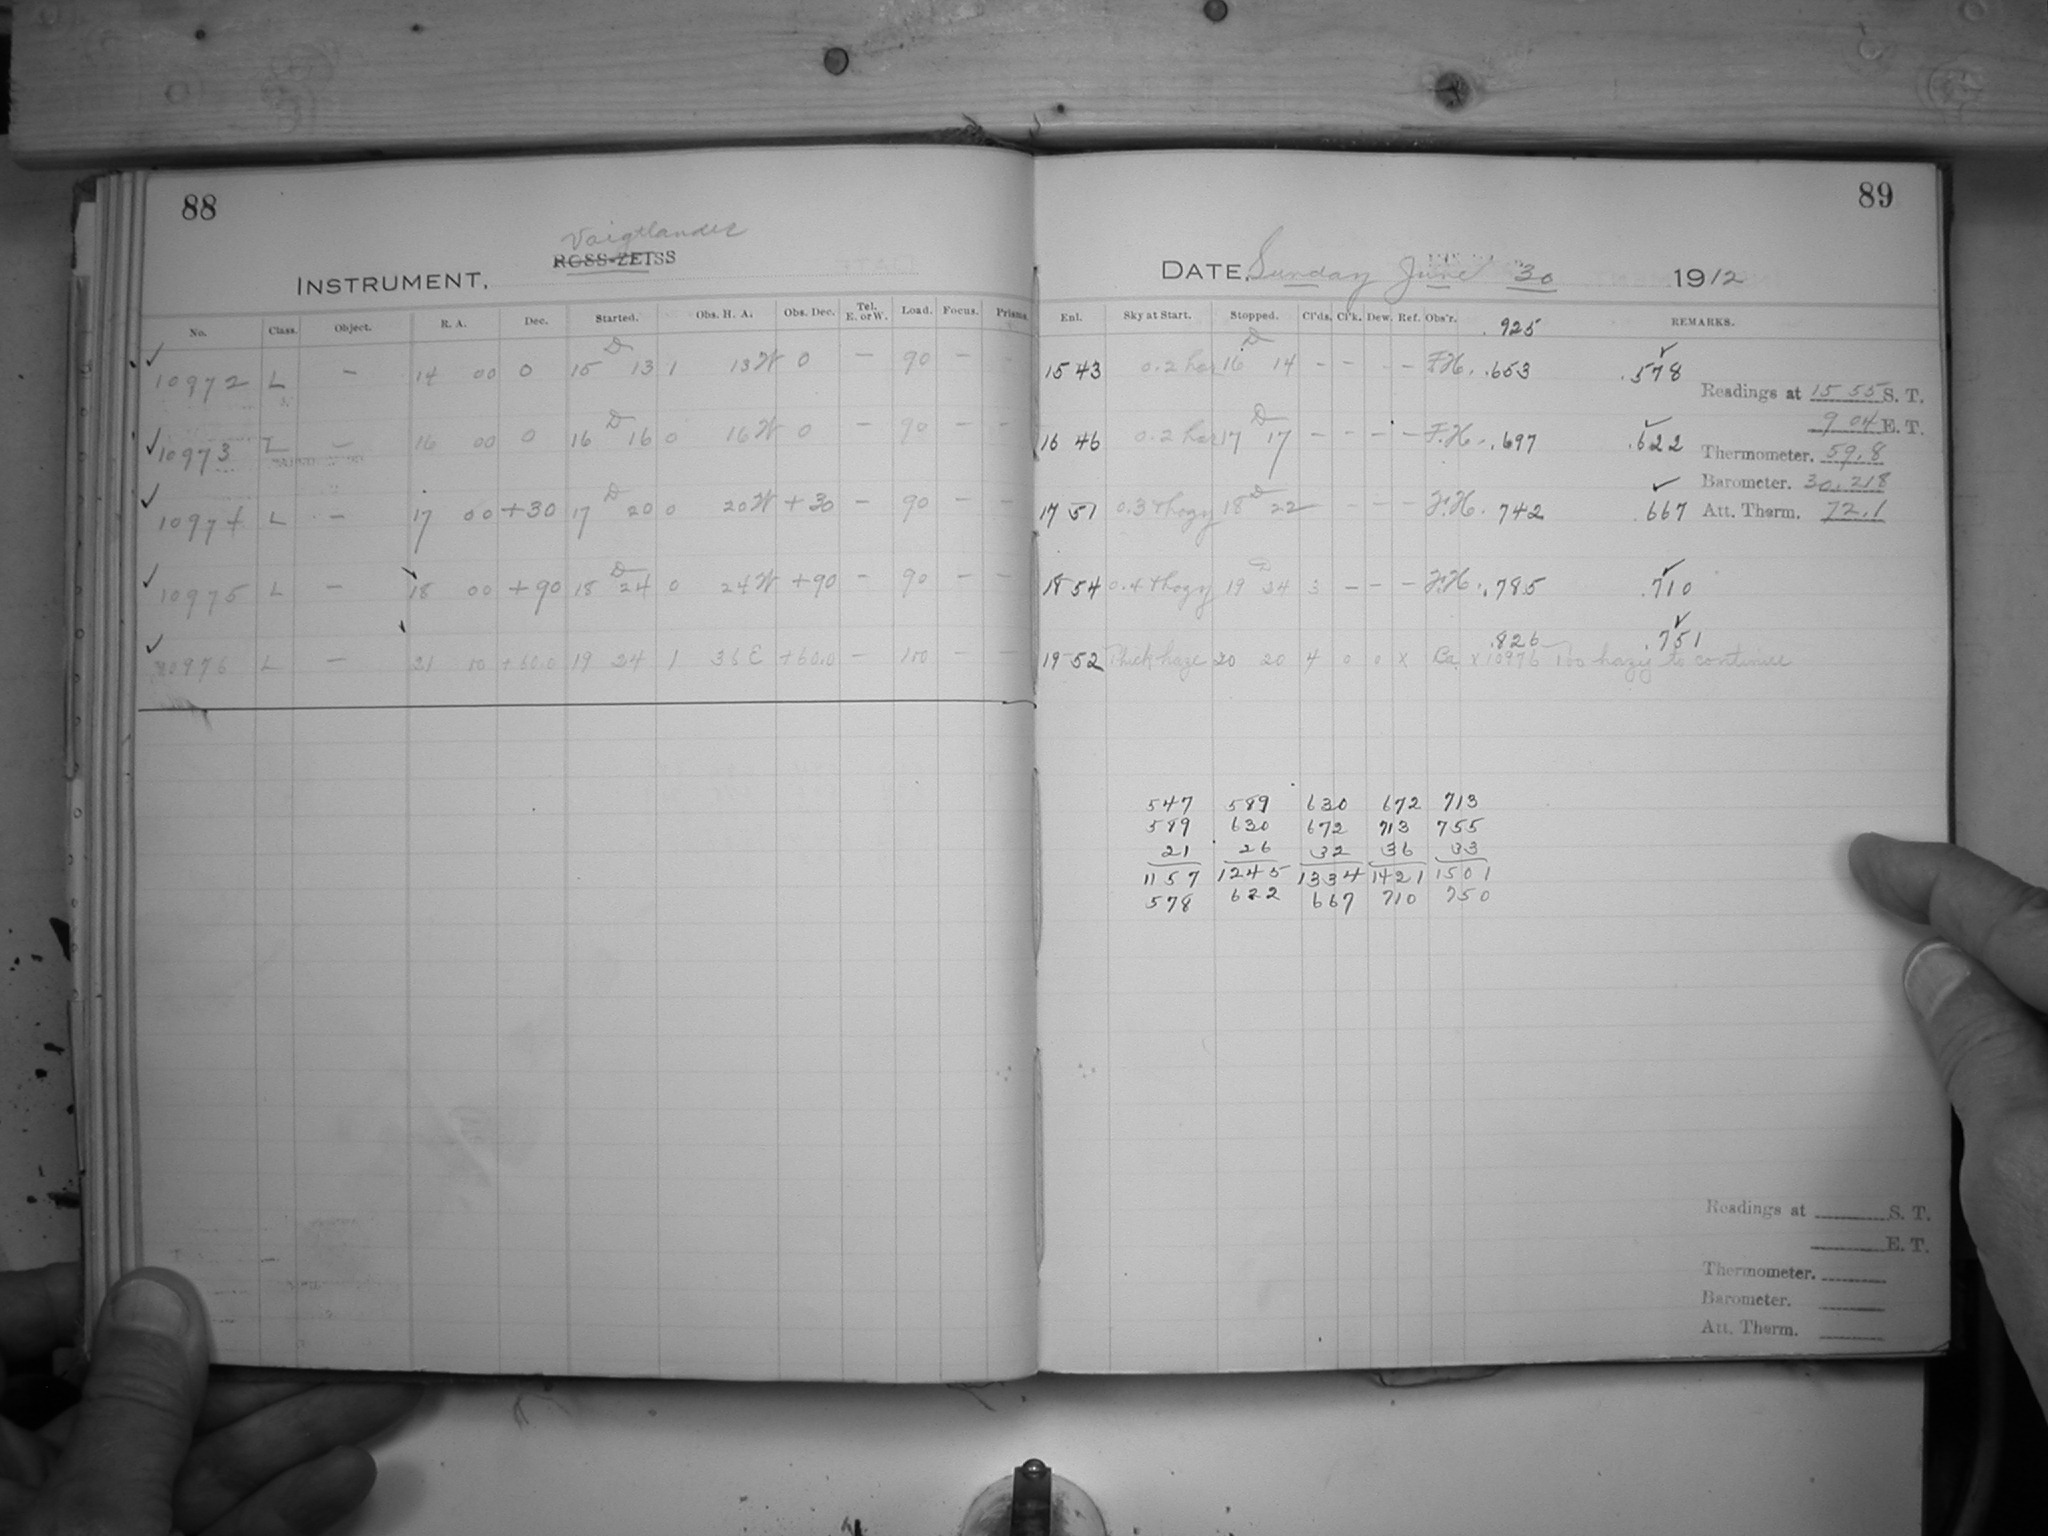 88
89
Voigtlander
ROSS-ZEISS
INSTRUMENT,
DATE, Sunday June 30 1912
No. Class. Object. R. A. Dec. Started. Obs. H. A. Obs. Dec. Tel. E. or W. Load. Focus. Prisms. Enl. Sky at Start. Stopped. Cl'ds. Cl'k. Dew. Ref. Obs'r. .925 REMARKS.
✓ 10972 L — 14 00 0 15 D 13 1 13 W 0 — 90 — - 15 43 0.2 16 D 14 - - - - F.H. .653 .578 ✓
Readings at 15 55 S. T.
9 04 E. T.
✓ 10973 L — 16 00 0 16 D 16 0 16 W 0 — 90 — - 16 46 0.2 17 D 17 - - - - F.H. .697 .622 ✓
Thermometer. 59.8
Barometer. 30.218
✓ 10974 L — 17 00 +30 17 D 20 0 20 W +30 — 90 — - 17 51 0.3 + hazy 18 D 22 - - - - F.H. .742 .667 ✓
Att. Therm. 72.1
✓ 10975 L — 18 00 +90 18 D 24 0 24 W +90 — 90 — — 18 54 0.4 + hazy 19 D 24 3 — - - F.H. .785 .710 ✓
.826 .751 ✓
✓ 10976 L — 21 00 +60.0 19 24 1 36 E +60.0 — 100 — — 19 52 Thick haze 20 20 4 0 0 x x 10976 Too hazy to continue
547 589 630 672 713
589 630 672 713 755
21 26 32 36 33
1157 1245 1334 1421 1501
578 622 667 710 750
Readings at S. T.
E. T.
Thermometer.
Barometer.
Att. Therm.